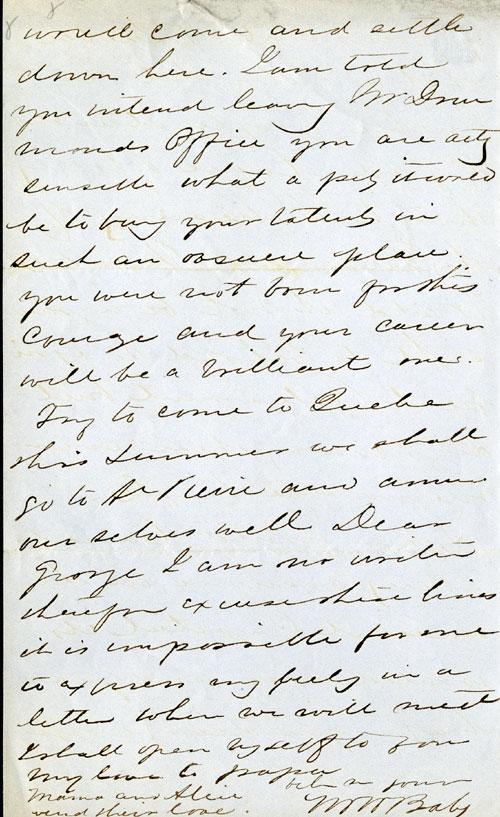 would come and settle
down here. I am told
you intend leaving Mr Drum
monds Office you are
sensible what a pity it would
be to bury your talents in
such an obscure place.
you were not born for this
and your career
will be a brilliant one.
Try to come to Quebe
this summer we shall
go to St Pierre and amuse
our selves well Dear
George I am no writer
therefor excuse these lines
it is impossible for me
to express my feelings in a
letter when we will meet
I shall open myself to you
my love to papa
Mama and Alice
send their love.
your
Baby